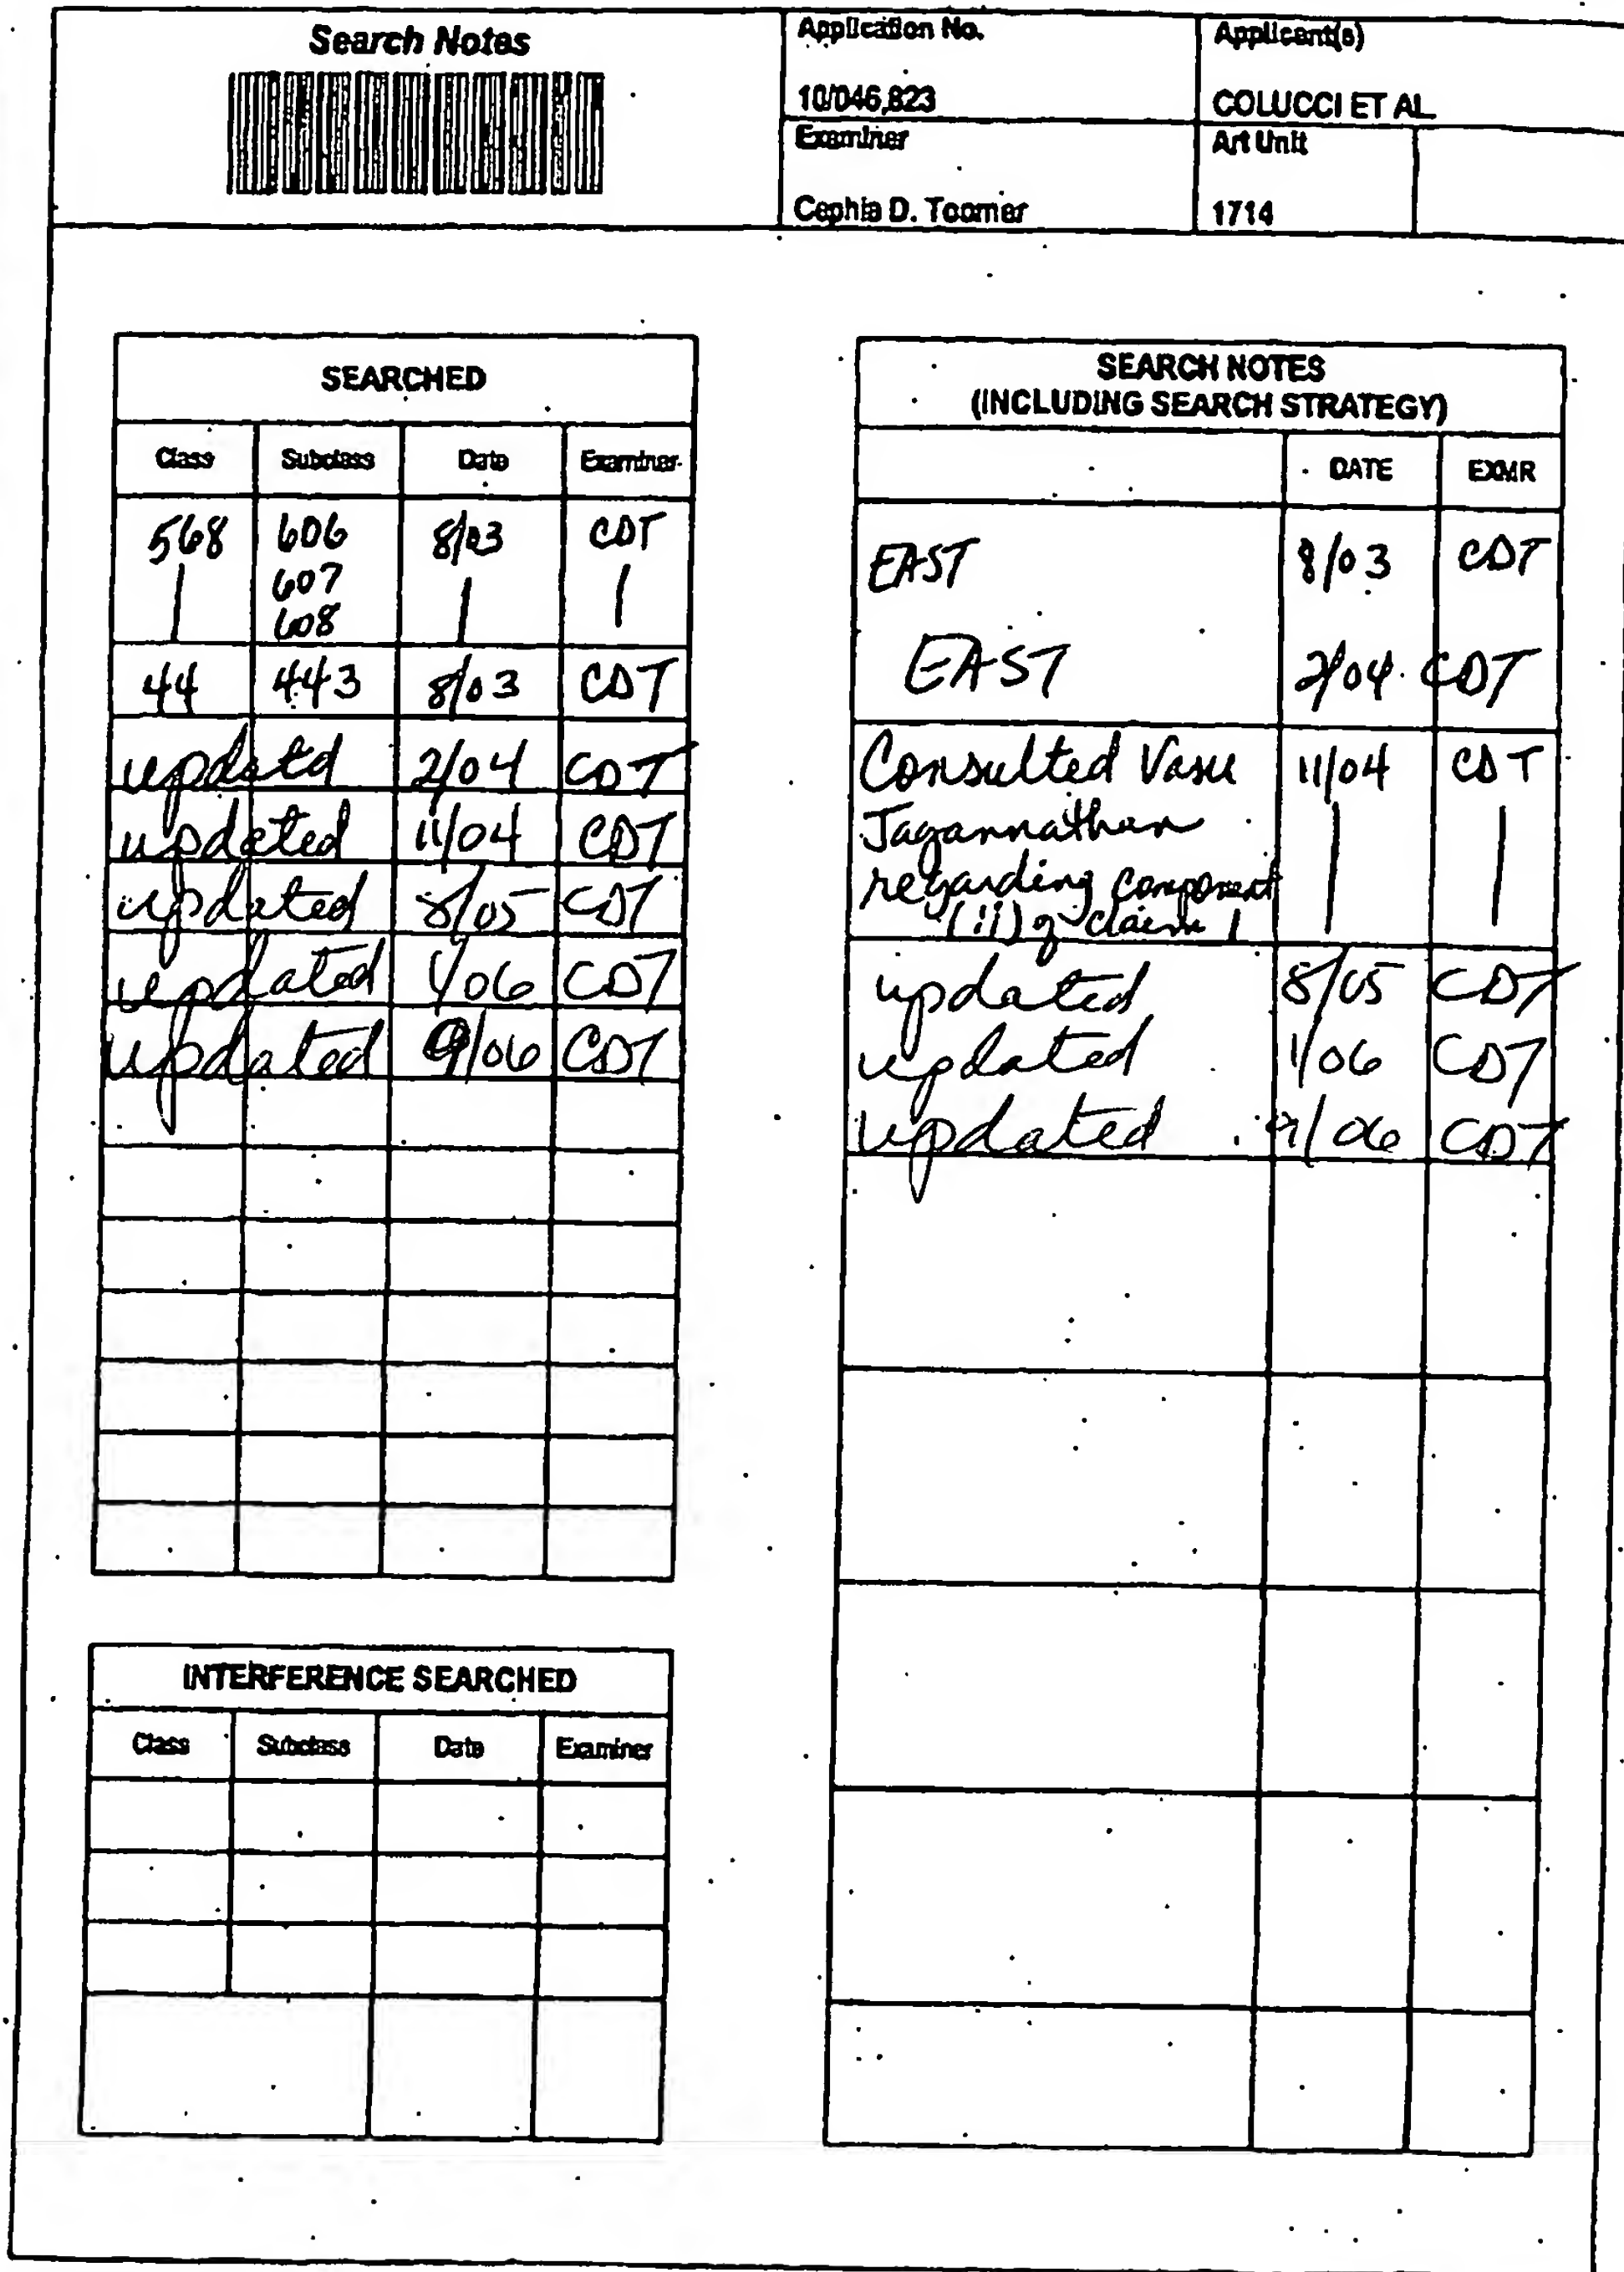 Search Notes
Application No.
Applicant(s)
10/046,823
COLUCCI ET AL
Examiner
Art Unit
Cephia D. Toomer
1714
SEARCHED
Class Subclass Date Examiner
568 606 8/03 CDT
607
608
44 443 8/03 CDT
updatd 2/04 CDT
updated 11/04 CDT
updated 8/05 CDT
updated 1/06 CDT
updated 9/06 CDT
INTERFERENCE SEARCHED
Class Subclass Date Examiner
SEARCH NOTES
(INCLUDING SEARCH STRATEGY)
DATE EXMR
EAST 8/03 CDT
EAST 2/04 CDT
Consulted Vasu 11/04 CDT
Jagannathan
regarding component
(ii) of claim 1
updated 8/05 CDT
updated 1/06 CDT
updated 9/06 CDT